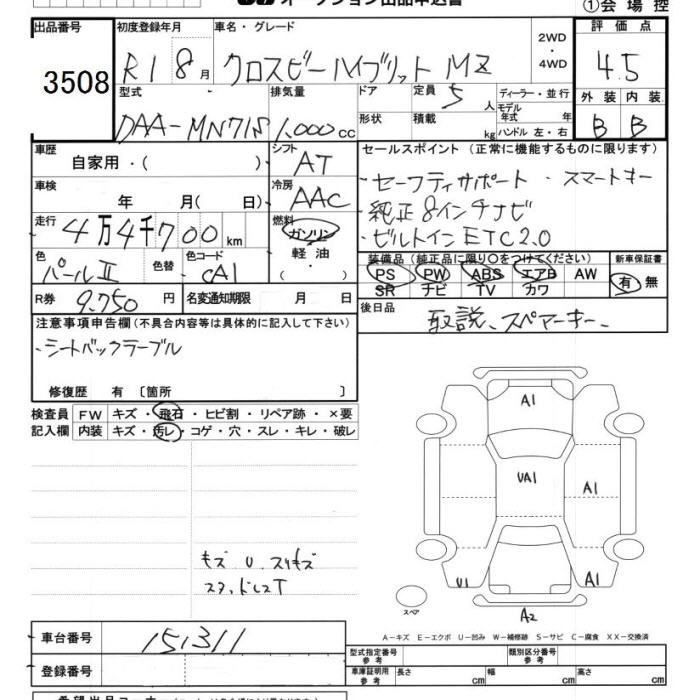 オークション出品申込書
①会場控
出品番号 初度登録年月 車名・グレード 評価点
3508 R1 8月 クロスビーハイブリット MZ 2WD・4WD 4.5
型式 排気量 ドア 定員 5人 ディーラー・並行 外装 内装
DAA-MN71S 1,000cc 形状 積載 kg モデル年式 年式 ハンドル 左・右 B B
車歴 自家用・( ) シフト AT セールスポイント (正常に機能するものに限ります)
車検 年 月( 日) 冷房 AAC ・セーフティサポート ・スマートキー
走行 4万4千700km 燃料 ガソリン・軽油・( ) ・純正8インチナビ
・ビルトインETC2.0
色 パールⅡ 色替 色コード CA1 装備品 (純正品に限り○をつけてください) 新車保証書
PS PW ABS エアB AW 有・無
SR ナビ TV カワ
R券 9,750円 名変通知期限 月 日
後日品 取説、スペアーキー、
注意事項申告欄(不具合内容等は具体的に記入して下さい)
・シートバックテーブル
修復歴 有 〔箇所 〕
検査員 FW キズ・飛石・ヒビ割・リペア跡・×要
記入欄 内装 キズ・汚レ・コゲ・穴・スレ・キレ・破レ
A1
UA1
A1
U1
A1
A2
スペア
キズ U スリキズ
A-キズ E-エクボ U-凹み W-補修跡 S-サビ C-腐食 XX-交換済
車台番号 151311
型式指定番号 参考 類別区分番号 参考
登録番号 車庫証明用 参考 長さ cm 幅 cm 高さ cm